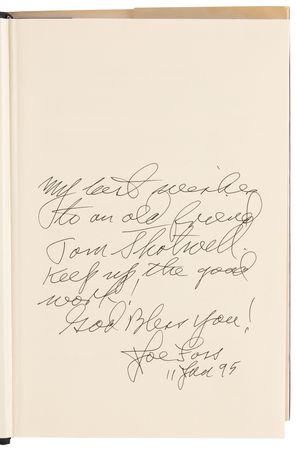 My best wishes
to an old friend
Tom Shotwell.
Keep up the good
work!
God Bless You!
Joe Foss
11 Jan 95